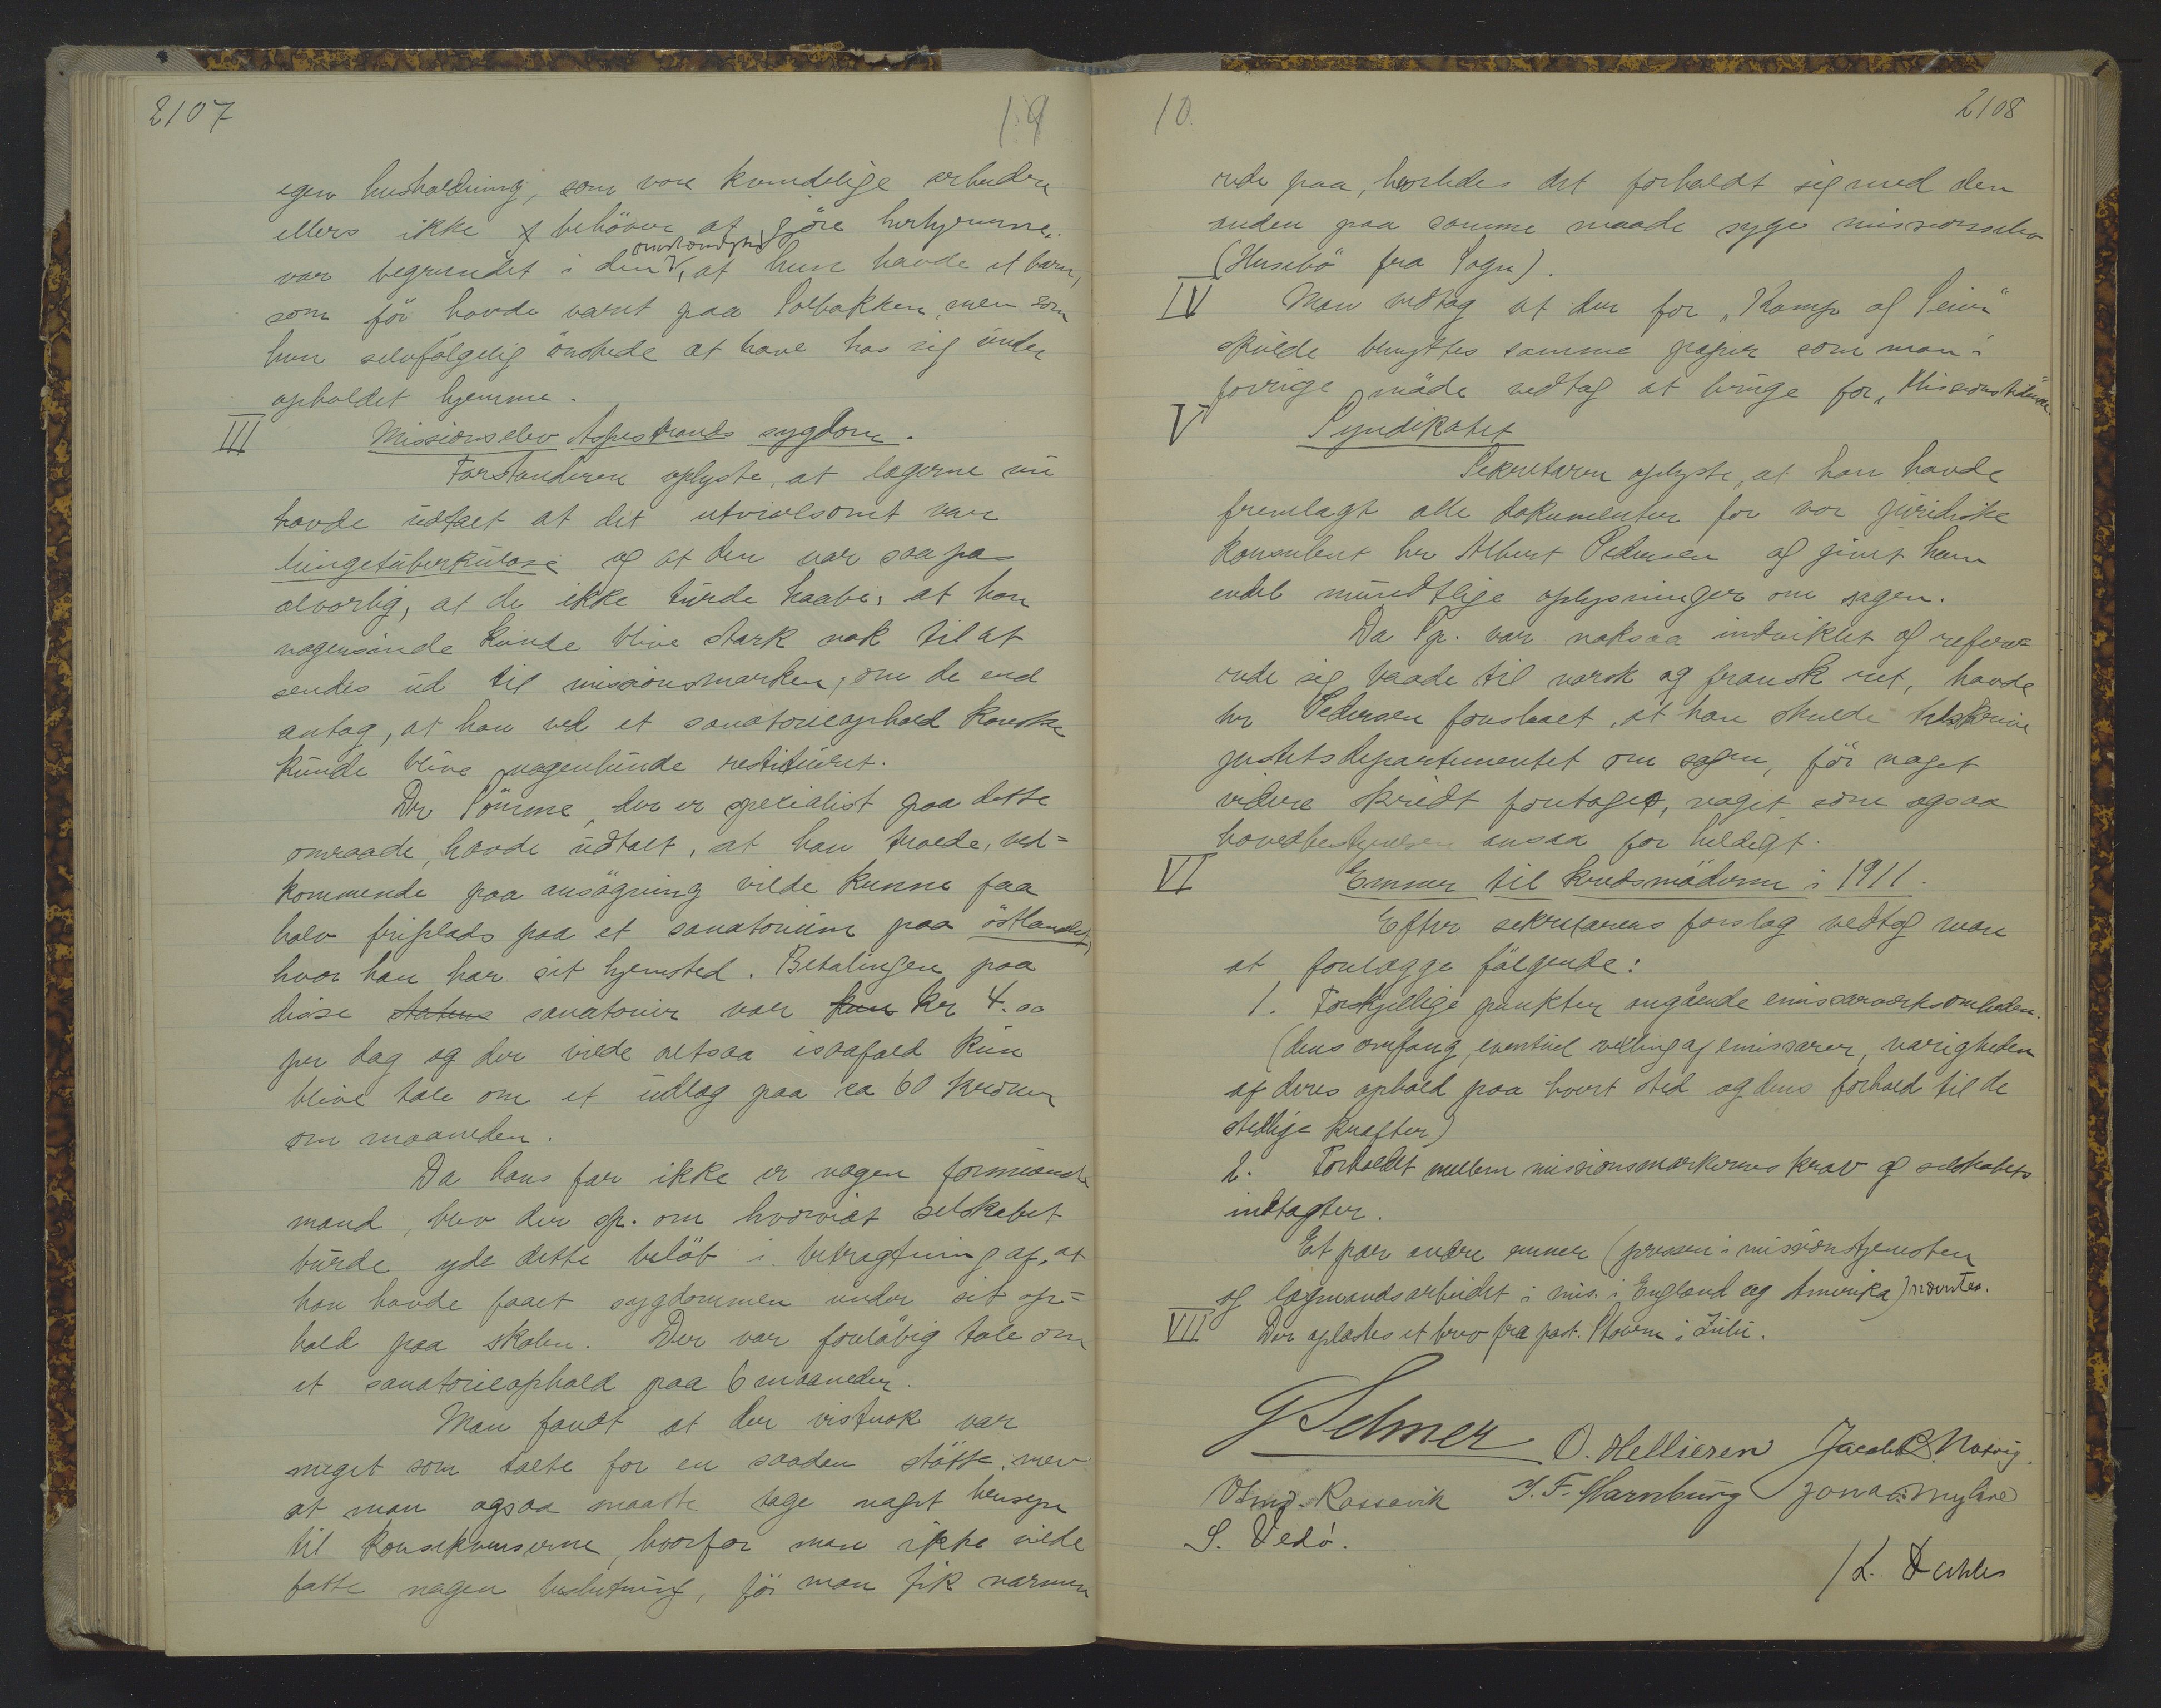 2107
19
egen husholdning, som vore kvindelige arbeidere
ellers ikke behöver at gjöre herhjemme.
var begrundet i den omstændighed, at hun havde et barn,
som för havde været paa Solbakken, men som
hun selvfölgelig önskede at have hos sig under
opholdet hjemme.
III Missionselev Aspestrands sygdom.
Forstanderen oplyste, at lægerne nu
havde udtalt at det utvivlsomt var
lungetuberkulose og at den var saapas
alvorlig, at de ikke turde haabe, at han
nogensinde kunde blive stærk nok til at
sendes ud til missionsmarken, om de end
antog, at han ved et sanatorieophold kanske
kunde blive nogenlunde restitueret.
Dr Sömme, der er specialist paa dette
omraade, havde udtalt, at han troede, ved=
kommende paa ansögning vilde kunne faa
halv friplads paa et sanatorium paa östlandet,
hvor han har sit hjemsted. Betalingen paa
disse statens sanatorier var kun kr 4.00
per dag og der vilde altsaa isaafald kun
blive tale om et udlæg paa ca 60 kroner
om maaneden.
Da hans far ikke er nogen formuende
mand, blev der sp. om hvorvidt selskabet
burde yde dette belöb i betragtning af, at
han havde faaet sygdommen under sit op=
hold paa skolen. Der var foreløbig tale om
et sanatorieophold paa 6 maaneder.
Man fandt at der vistnok var
meget som talte for en saadan stötte, men
at man ogsaa maatte tage noget hensyn
til konsekvenserne, hvorfor man ikke vilde
fatte nogen beslutning, för man fik nærmere
10.
2108
rede paa, hvorledes det forholdt sig med den
anden paa samme maade syge missionselev
(Husebö fra Sogn).
IV Man vedtog at der for "Kamp og Seier"
skulde benyttes samme papir som man i
forrige möde vedtog at bruge for "Missionstidende".
V Syndikatet
Sekretæren oplyste, at han havde
fremlagt alle dokumenter for vor juridiske
konsulent hr Albert Pedersen og givet ham
endel mundtlige oplysninger om sagen.
Da Sp. var noksaa indviklet og refere=
rede sig baade til norsk og fransk ret, havde
hr Pedersen foreslaaet, at han skulde tilskrive
justitsdepartementet om sagen, för noget
videre skridt foretoges, noget som ogsaa
hovedbestyrelsen ansaa for heldigt.
VI Emner til kredsmöderne i 1911.
Efter sekretærens forslag vedtog man
at forelægge fölgende:
1. Forskjellige punkter angående emissærvirksomheden.
(dens omfang, eventuel veksling af emissærer, varigheden
af deres ophold paa hvert sted og dens forhold til de
stedlige kræfter)
2. Forholdet mellem missionsmarkernes krav og selskabets
indtægter.
Et par andre emner (pressen i missionstjenesten
og lægmandsarbeidet i mis. i England og Amerika) nævntes.
VII Der oplæstes et brev fra past. Stavem i Zulu.
G Selmer O. Hellieren Jacob C. Natvig.
Rossavik J. F. Varnburg Jonas Myhre
S. Vedö.
/L. Dahle